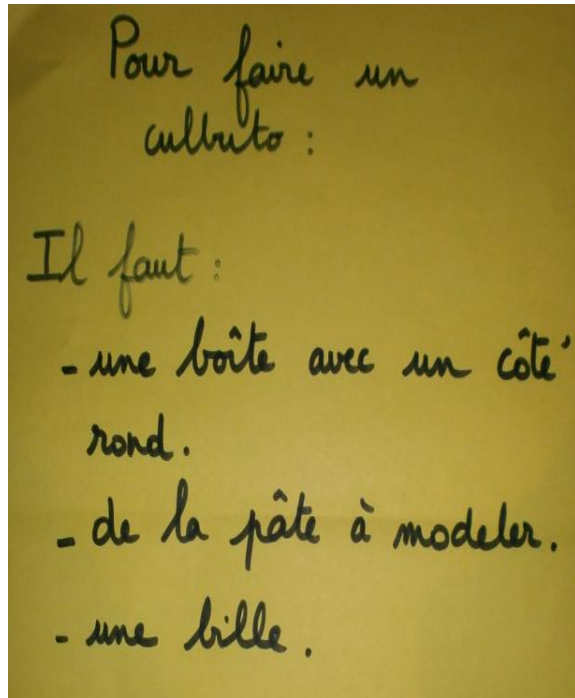 Pour faire un
culbuto :
Il faut :
- une boîte avec un côté
rond.
- de la pâte à modeler.
- une bille.